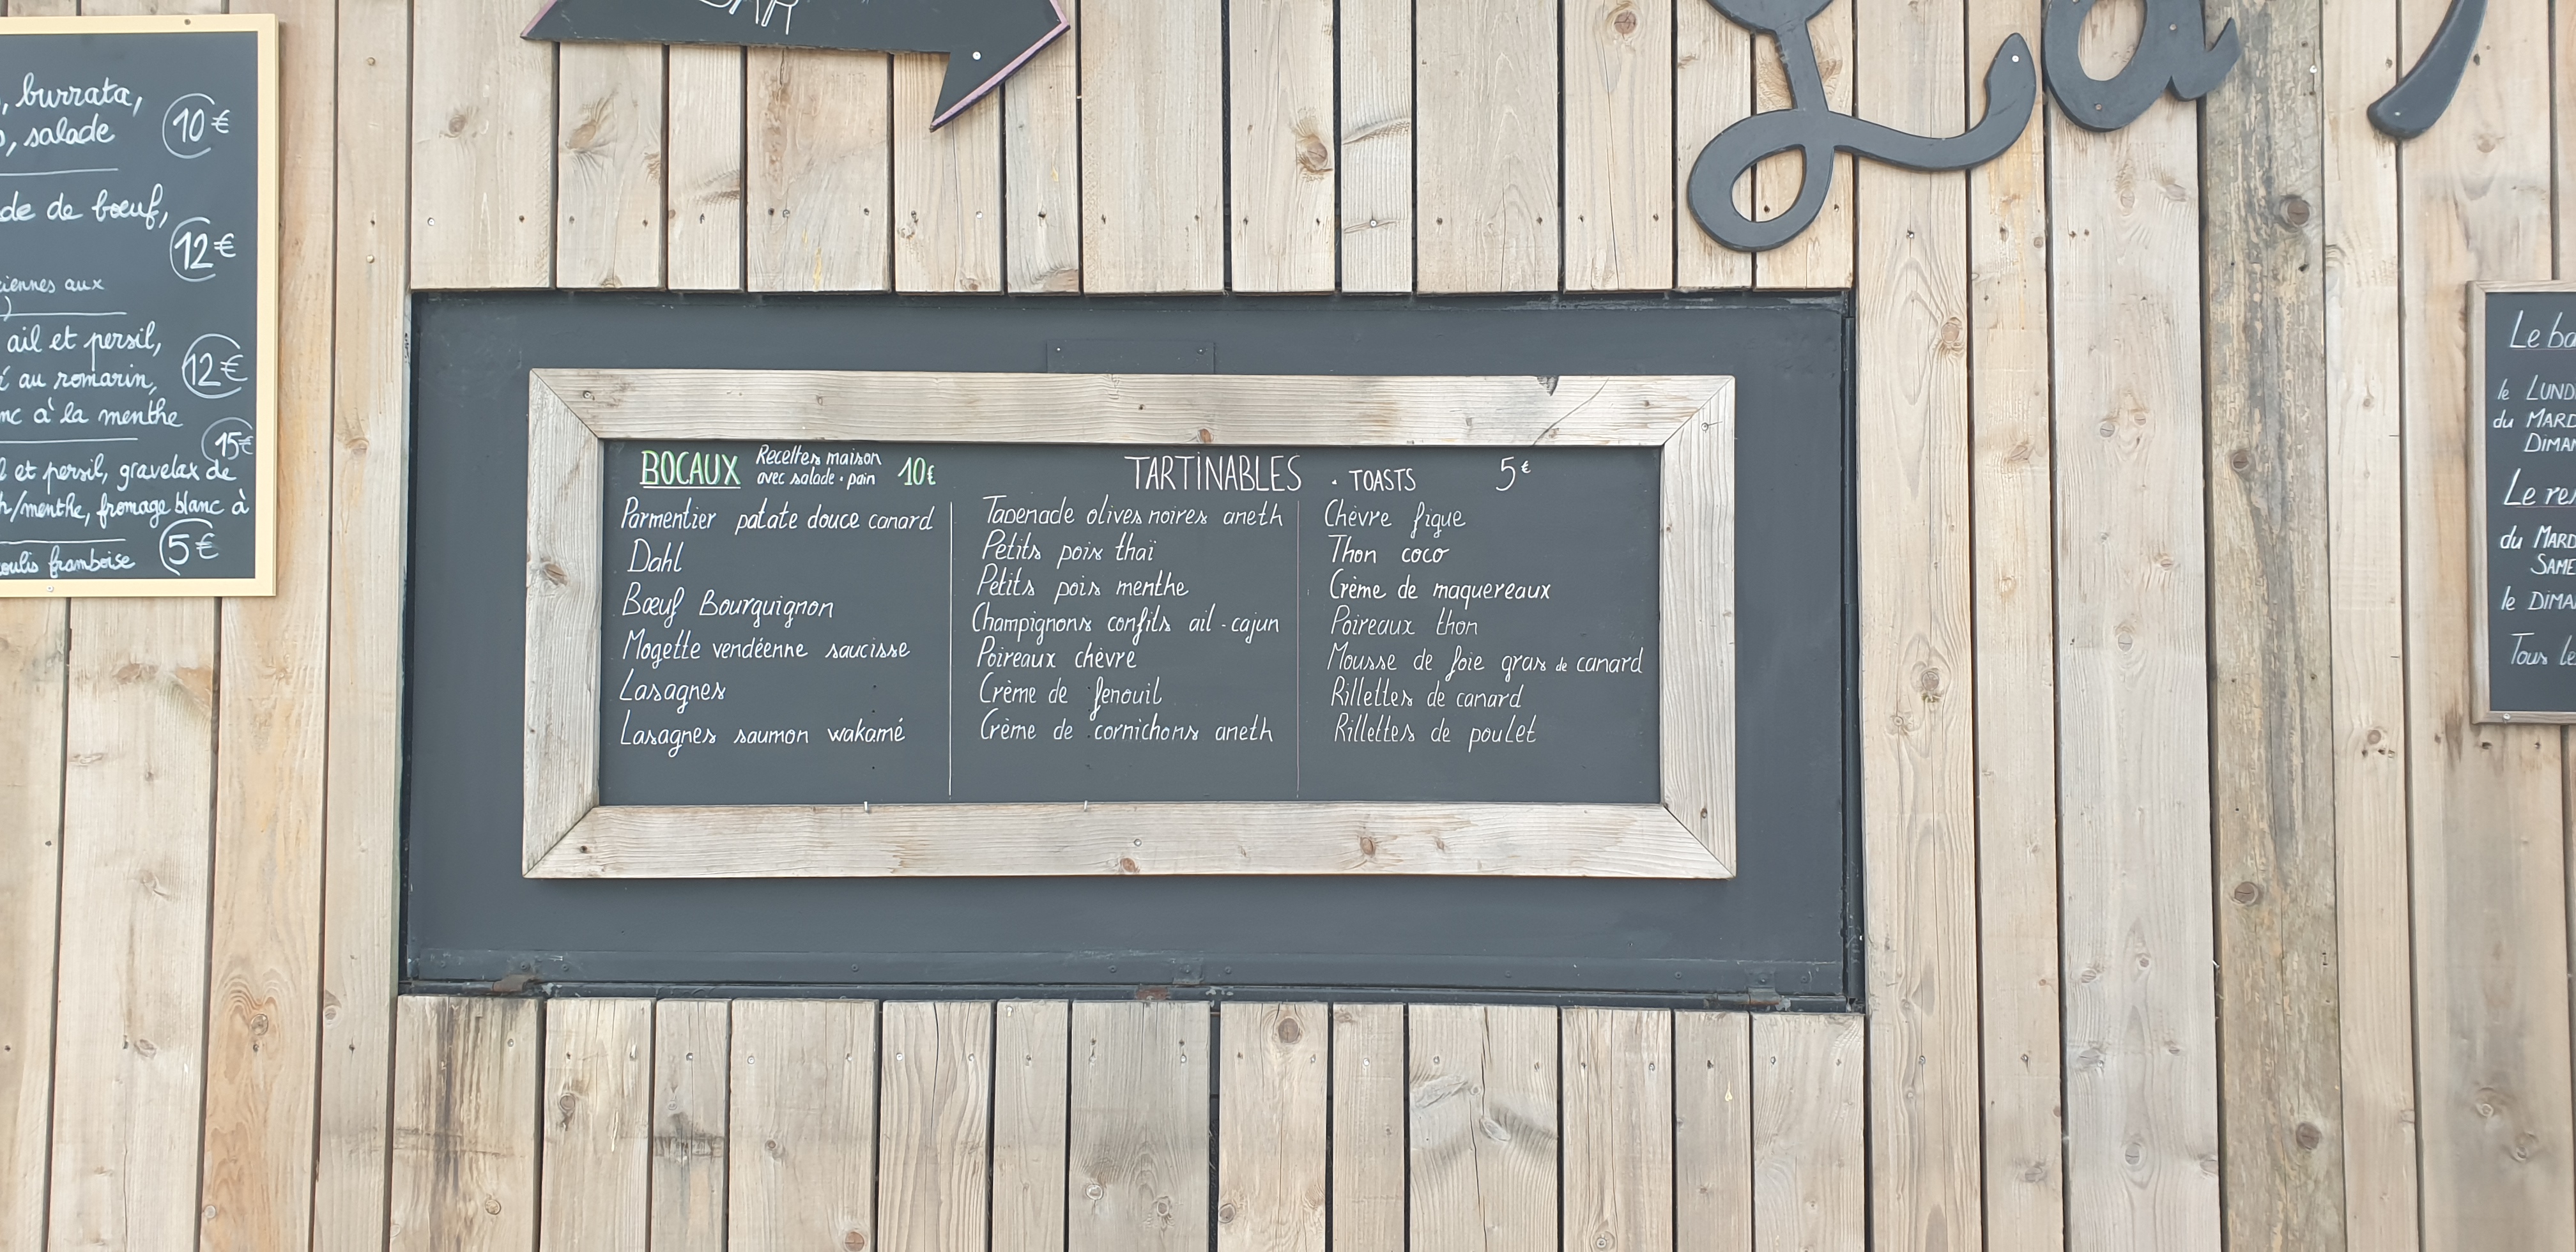 BAR
La
, burrata,
, salade
10€
de de bœuf,
12€
iennes aux
)
ail et persil,
au romarin,
12€
nc à la menthe
15€
l et persil, gravelax de
h/menthe, fromage blanc à
oulis framboise
5€
BOCAUX Recettes maison
avec salade + pain 10€
Parmentier patate douce canard
Dahl
Bœuf Bourguignon
Mogette vendéenne saucisse
Lasagnes
Lasagnes saumon wakamé
TARTINABLES + TOASTS 5€
Tapenade olives noires aneth
Petits pois thaï
Petits pois menthe
Champignons confits ail - cajun
Poireaux chèvre
Crème de fenouil
Crème de cornichons aneth
Chèvre figue
Thon coco
Crème de maquereaux
Poireaux thon
Mousse de foie gras de canard
Rillettes de canard
Rillettes de poulet
Le ba
le LUND
du MARD
DIMAN
Le res
du MARD
SAME
le DIMA
Tous le